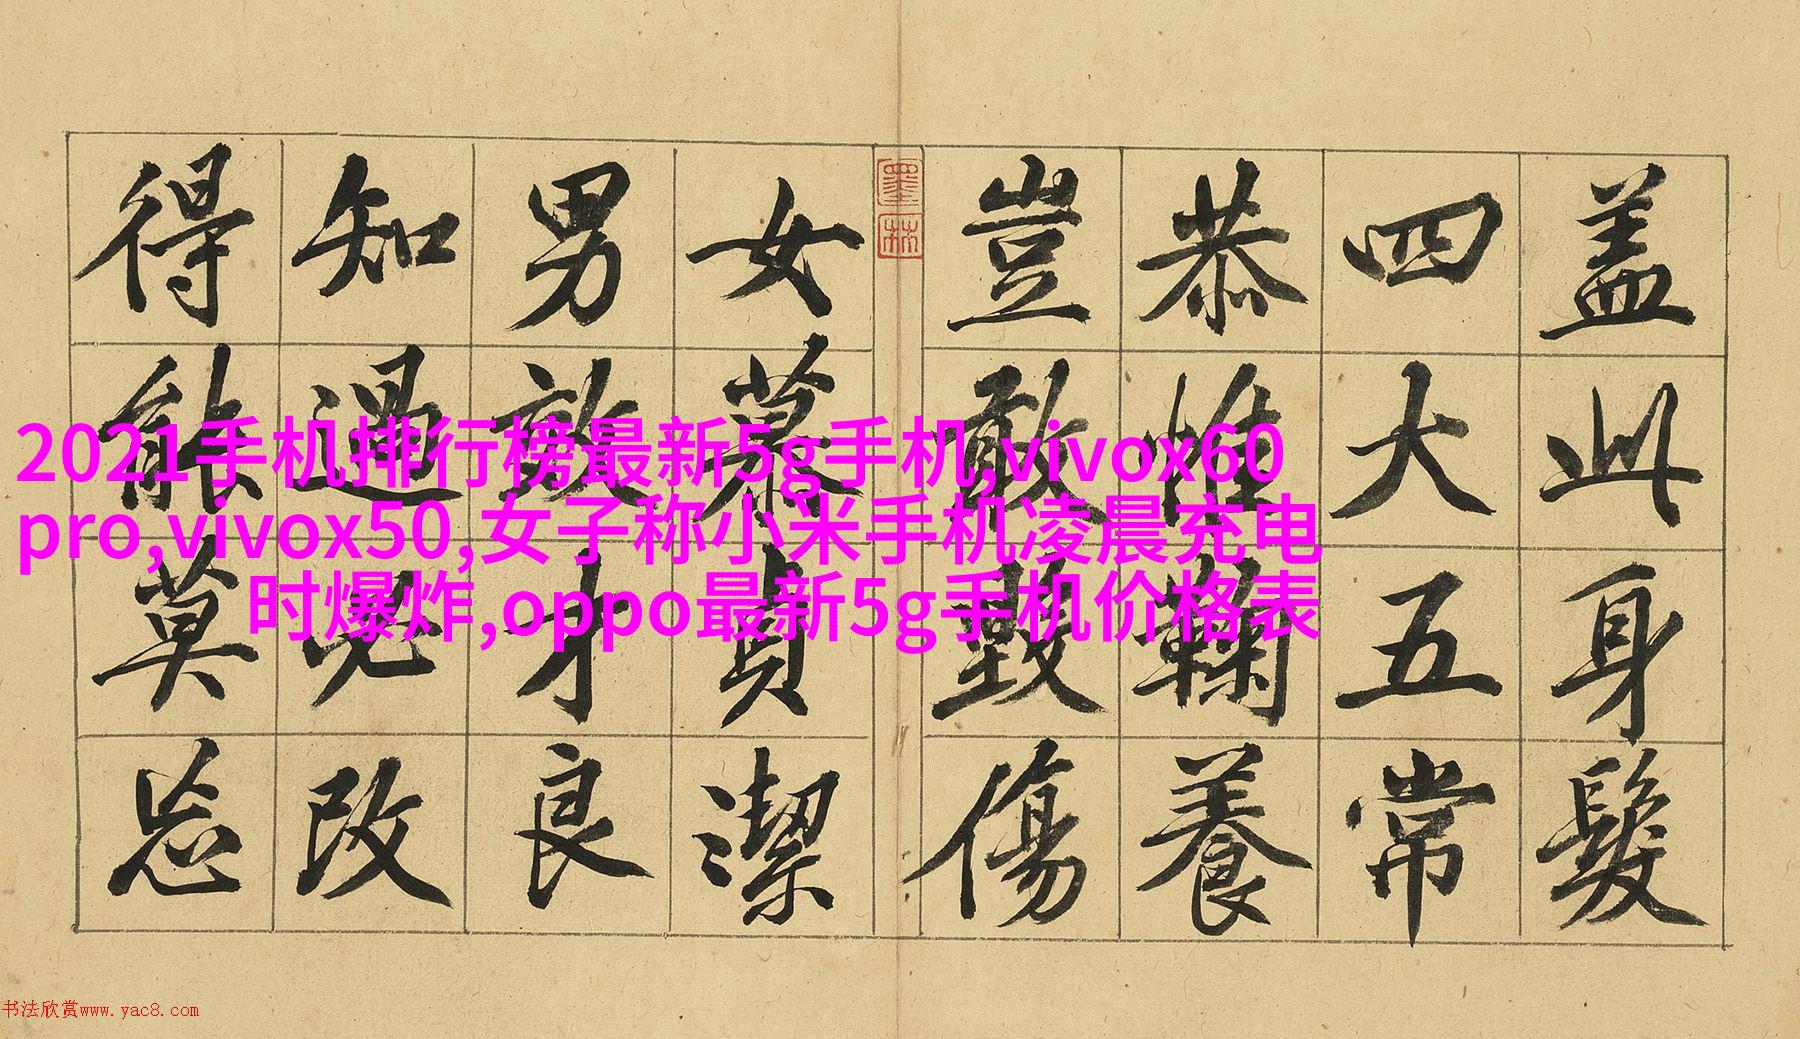 盖此身髮
四大五常
恭惟鞠養
豈敢毀傷
墨林
女慕貞潔
男效才良
知過必改
得能莫忘
2021手机排行榜最新5g手机,vivox60
pro,vivox50,女子称小米手机凌晨充电
时爆炸,oppo最新5g手机价格表
书法欣赏www.yac8.com